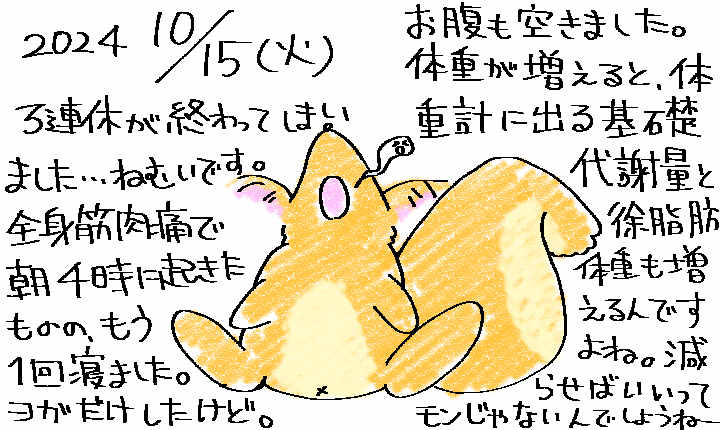 2024 10/15(火)
3連休が終わってしまい
ました…ねむいです。
全身筋肉痛で
朝4時に起きた
ものの、もう
1回寝ました。
ヨガだけしたけど。
お腹も空きました。
体重が増えると、体
重計に出る基礎
代謝量と
徐脂肪
体重も増
えるんです
よね。減
らせばいいって
モンじゃないんでしょうねー